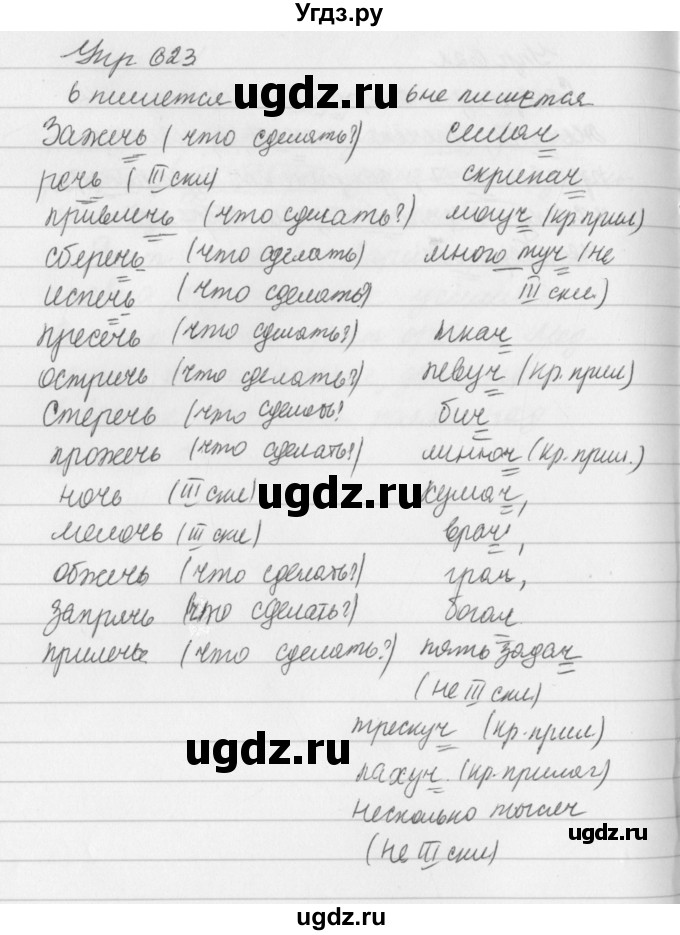 Угдз.ру
Упр 623
ь пишется ь не пишется
Зажечь (что сделать?) силач
речь (III скл) скрипач
привлечь (что сделать?) могуч (кр. прил)
сберечь (что сделать) много туч (не
испечь (что сделать?) III скл.)
пресечь (что сделать?) ткач
остричь (что сделать?) певуч (кр. прил)
Стеречь (что сделать? бич
прожечь (что сделать?) (кр. прил.)
ночь (III скл) кумач,
мелочь (III скл) врач,
обжечь (что сделать?) грач,
запрячь (что сделать?) богач
прилечь (что сделать?) пять задач
(не III скл)
трескуч (кр. прил.)
пахуч. (кр. прилаг)
несколько тысяч
(не III скл)
ugdz.ru
ugdz.ru
ugdz.ru
ugdz.ru
ugdz.ru